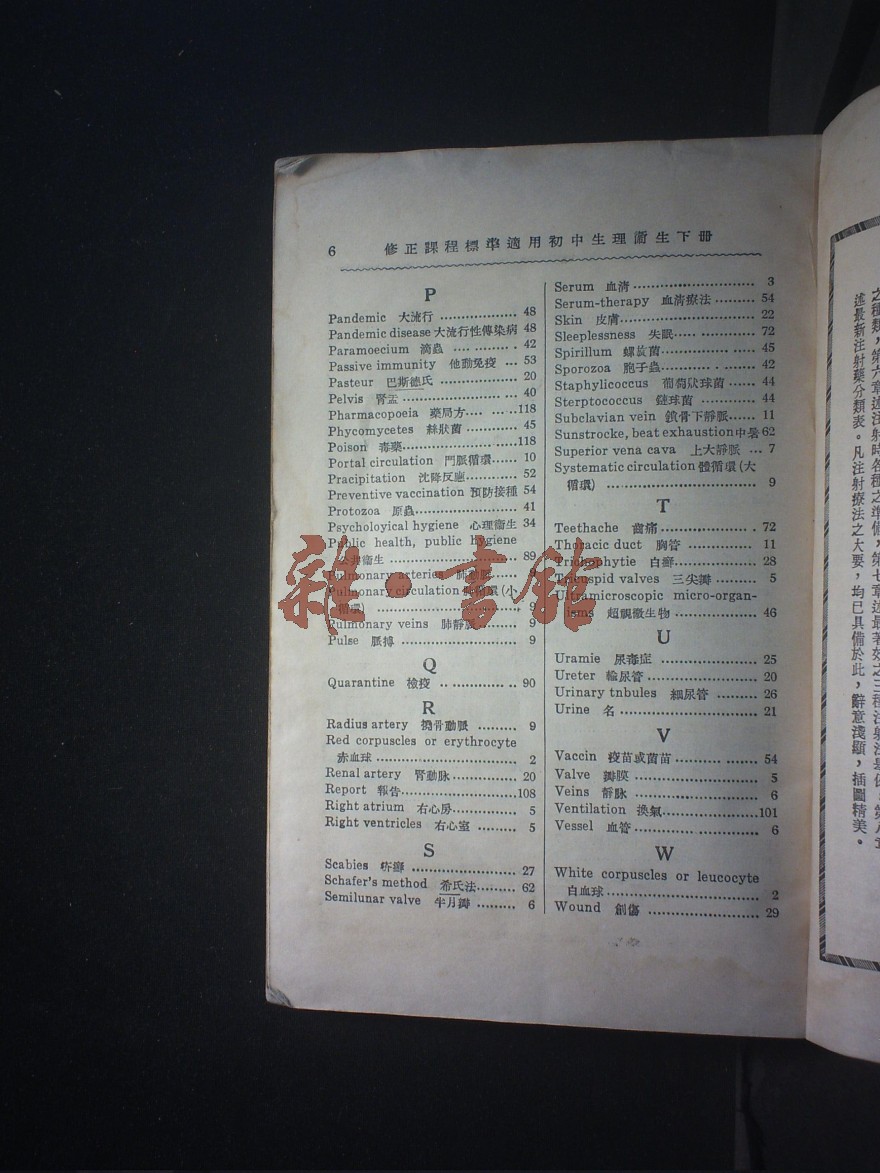 6
修正課程標準適用初中生理衞生下册
P
Pandemic 大流行 48
Pandemic disease 大流行性傳染病 48
Paramoecium 滴蟲 42
Passive immunity 他動免疫 53
Pasteur 巴斯德氏 20
Pelvis 腎盂 40
Pharmacopoeia 藥局方 118
Phycomycetes 絲狀菌 45
Poison 毒藥 118
Portal circulation 門脈循環 10
Pracipitation 沈降反應 52
Preventive vaccination 預防接種 54
Protozoa 原蟲 41
Psycholoyical hygiene 心理衞生 34
Public health, public hygiene
公共衞生 89
Pulmonary arteries 肺動脈
Pulmonary circulation 循環(小
循環) 9
Pulmonary veins 肺靜脈 9
Pulse 脈搏 9
Q
Quarantine 檢疫 90
R
Radius artery 橈骨動脈 9
Red corpuscles or erythrocyte
赤血球 2
Renal artery 腎動脉 20
Report 報告 108
Right atrium 右心房 5
Right ventricles 右心室 5
S
Scabies 疥癬 27
Schafer's method 希氏法 62
Semilunar valve 半月瓣 6
Serum 血清 3
Serum-therapy 血清療法 54
Skin 皮膚 22
Sleeplessness 失眠 72
Spirillum 螺旋菌 45
Sporozoa 胞子蟲 42
Staphylicoccus 葡萄狀球菌 44
Sterptococcus 鏈球菌 44
Subclavian vein 鎖骨下靜脈 11
Sunstrocke, beat exhaustion 中暑 62
Superior vena cava 上大靜脈 7
Systematic circulation 體循環(大
循環) 9
T
Teethache 齒痛 72
Thotacic duct 胸管 11
Trichophytie 白癬 28
Tricuspid valves 三尖瓣 5
Ultramicroscopic micro-organ-
isms 超視微生物 46
U
Uramie 尿毒症 25
Ureter 輸尿管 20
Urinary tnbules 細尿管 26
Urine 名 21
V
Vaccin 疫苗或菌苗 54
Valve 瓣膜 5
Veins 靜脉 6
Ventilation 換氣 101
Vessel 血管 6
W
White corpuscles or leucocyte
白血球 2
Wound 創傷 29
之種類，第六章述注射時各種之準備，第七章述最著效之三種注射法
述最新注射藥分類表。凡注射療法之大要，均已具備於此，辭意淺顯，插圖精美。
雜·書館